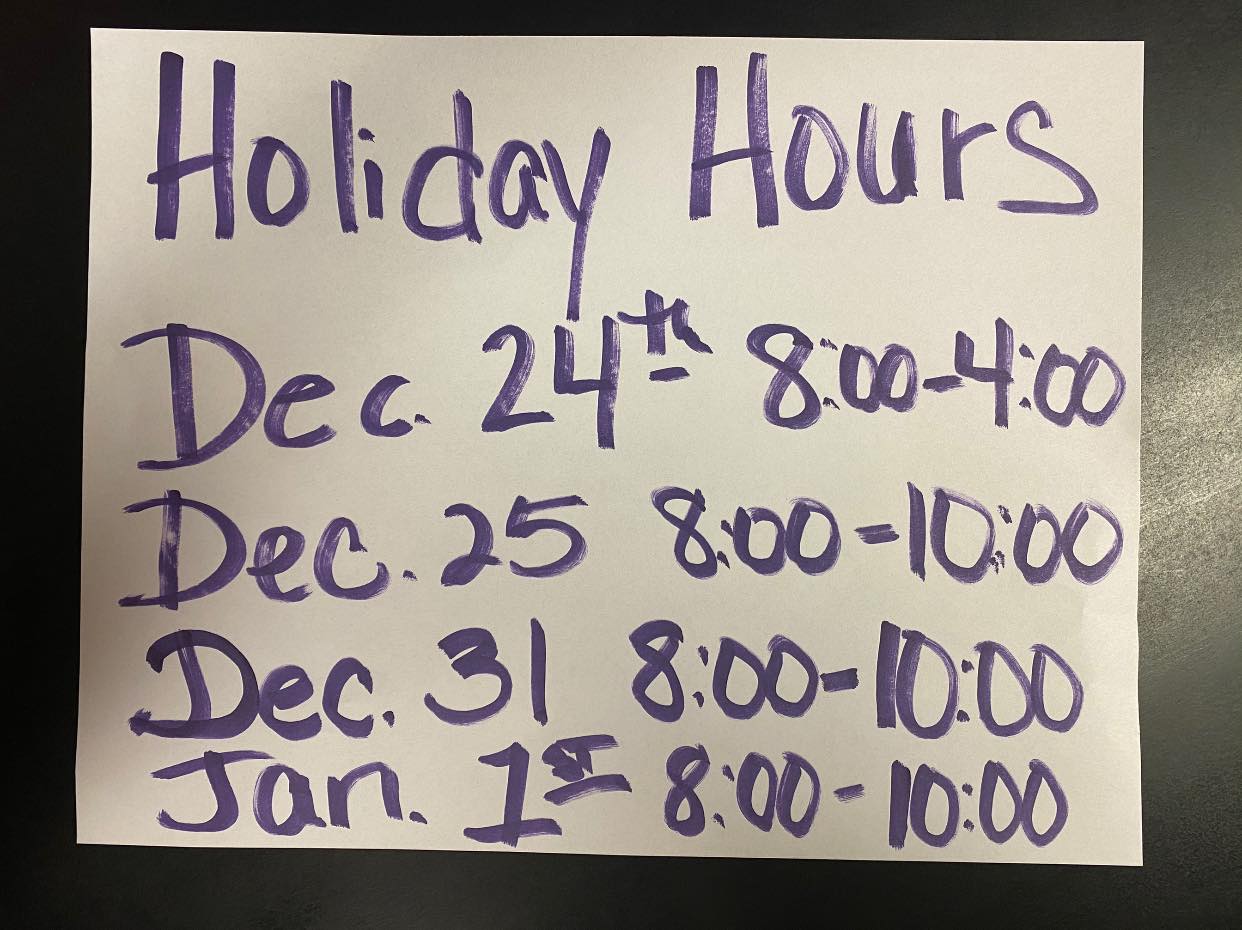 Holiday Hours
Dec. 24th 8:00-4:00
Dec. 25 8:00-10:00
Dec. 31 8:00-10:00
Jan. 1st 8:00-10:00